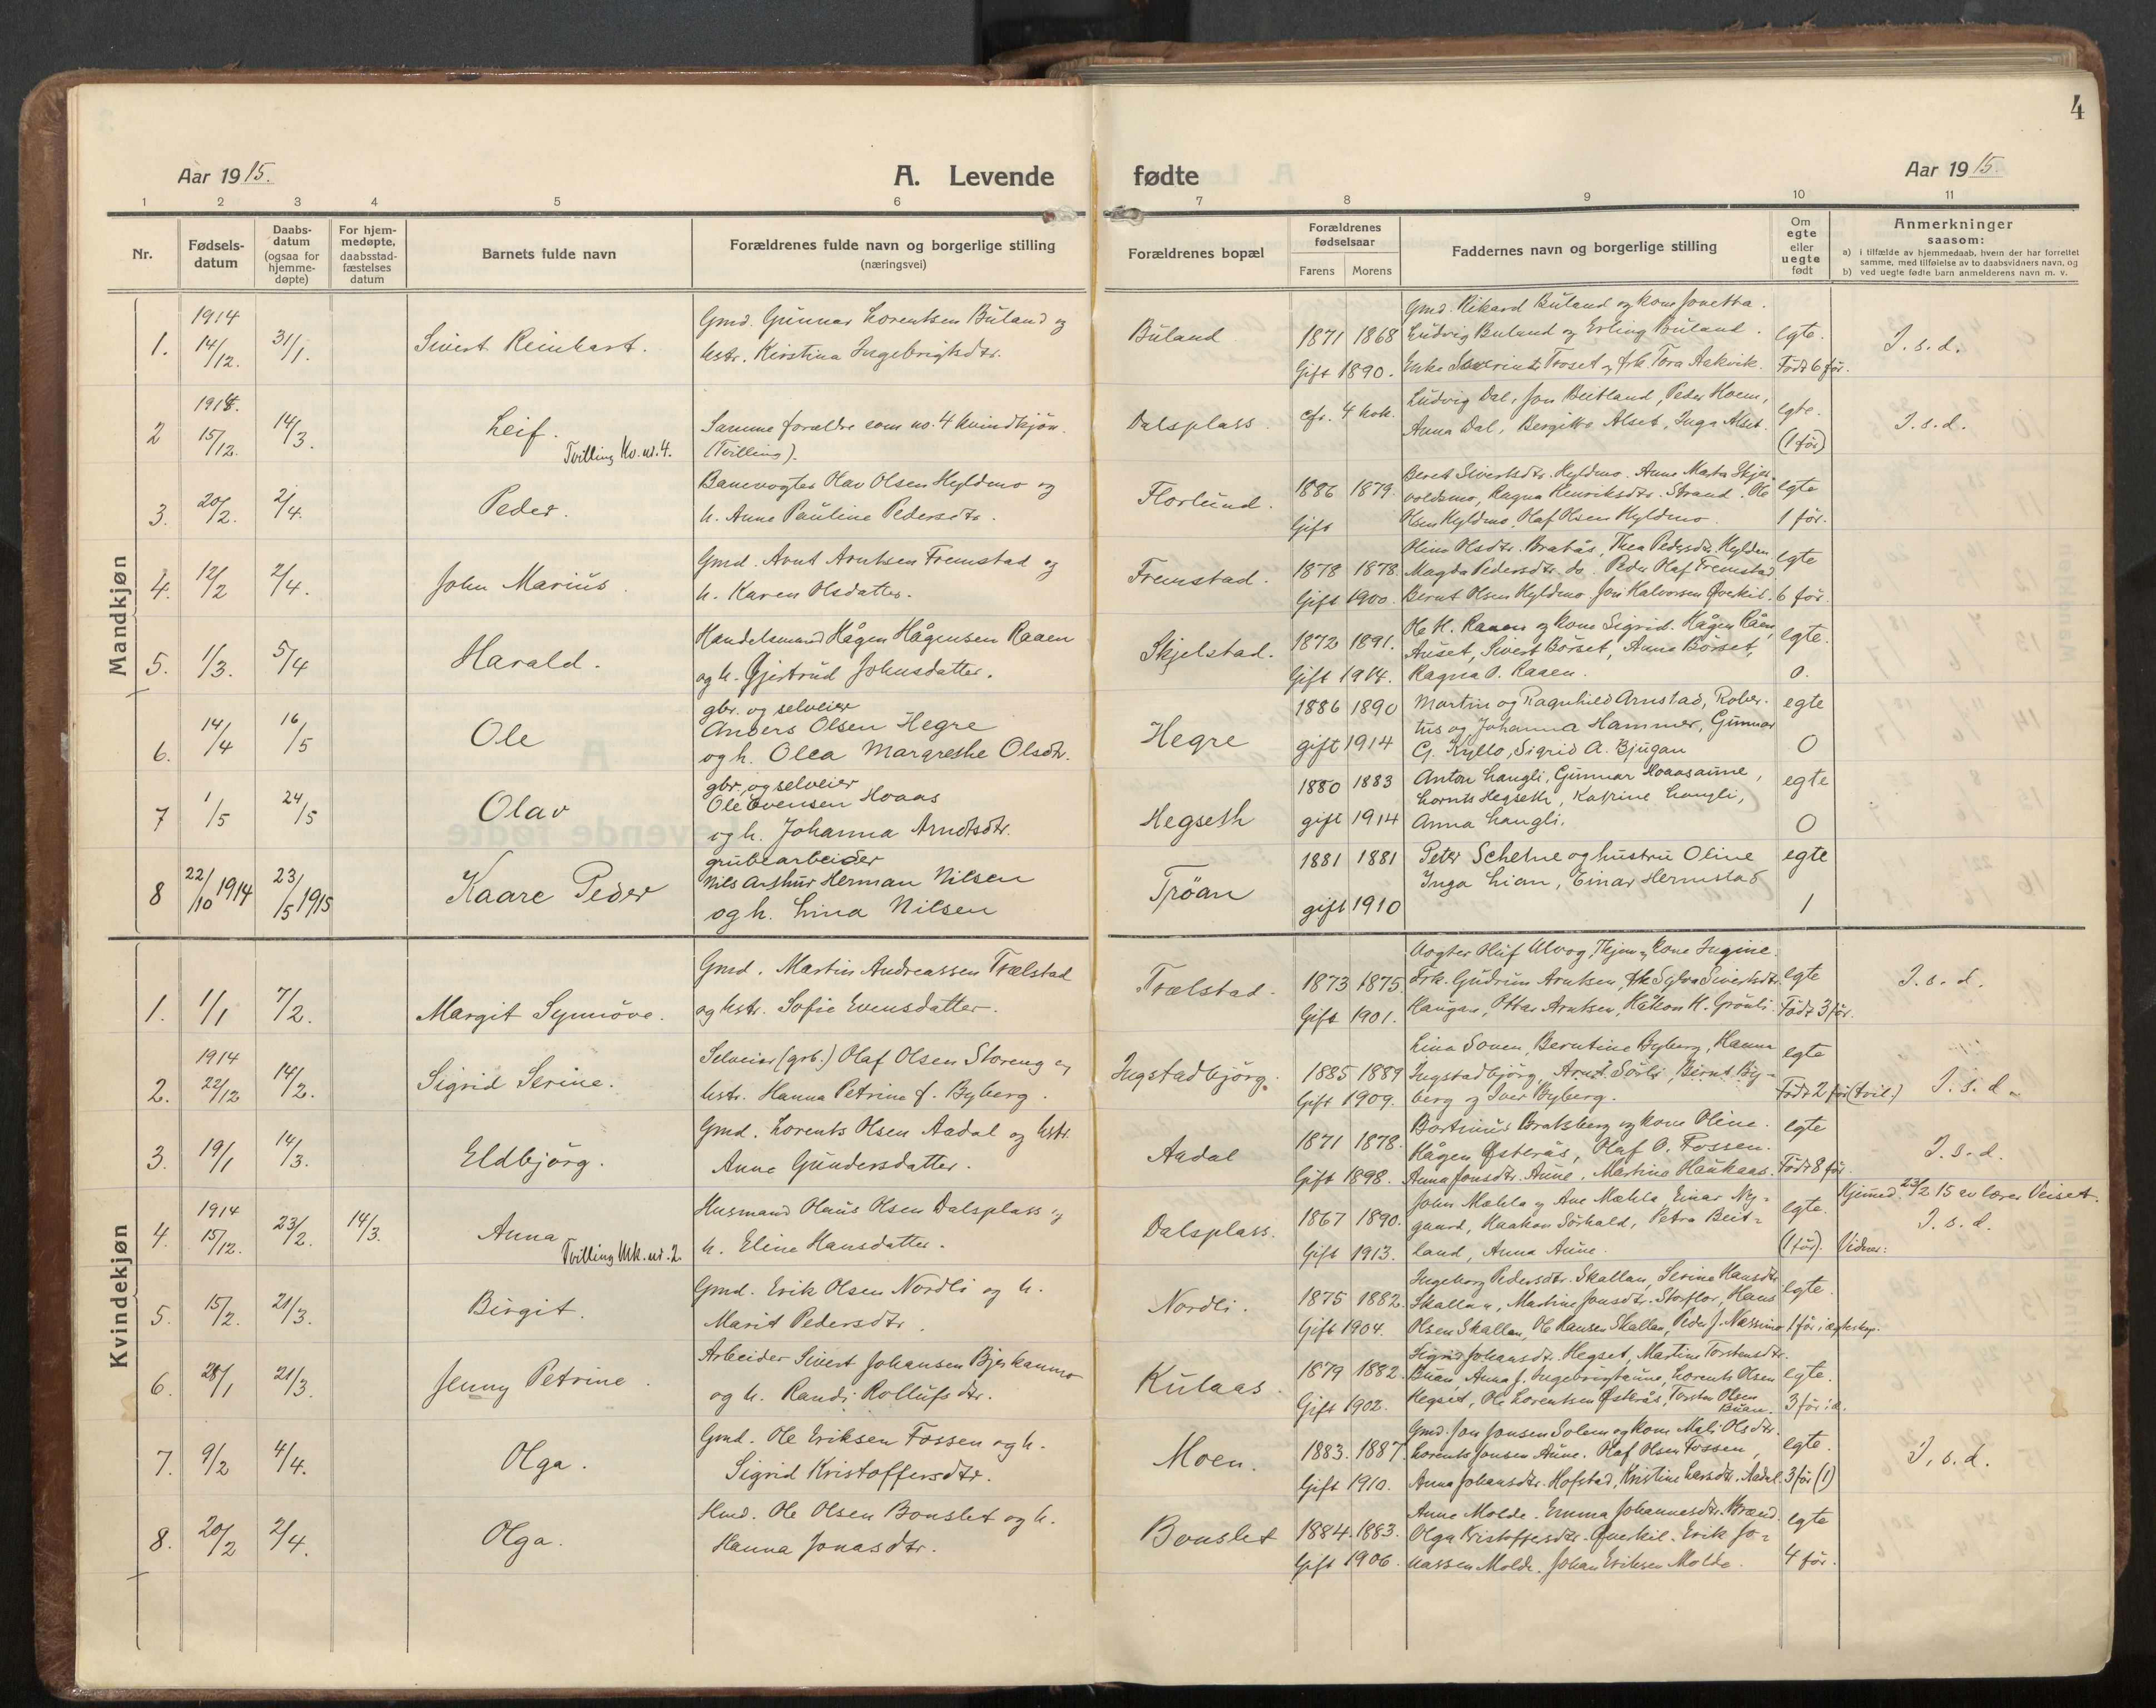 4
Aar 1915.
A. Levende
fødte
Aar 1915.
1 2 3 4 5 6 7 8 9 10 11
Nr.
Fødsels-
datum
Daabs-
datum
(ogsaa for
hjemme-
døpte)
For hjem-
medøpte,
daabsstad-
fæstelses
datum
Barnets fulde navn
Forældrenes fulde navn og borgerlige stilling
(næringsvei)
Forældrenes bopæl
Forældrenes
fødselsaar
Farens Morens
Faddernes navn og borgerlige stilling
Om
egte
eller
uegte
født
Anmerkninger
saasom:
a) i tilfælde av hjemmedaab, hvem der har forrettet
samme, med tilføielse av to daabsvidners navn, og
b) ved uegte fødte barn anmelderens navn m. v.
Mandkjøn
1. 1914 14/12. 31/1. Sivert Reinhart.
Gmd. Gunnar Lorentsen Buland og
hstr. Kirstina Ingebrigtsdtr.
Buland 1871 1868 Gift 1890.
Gmd. Rikard Buland og kone Jonetta.
Ludvig Buland og Erling Buland.
Enke Troset og frk. Tora Aakvik.
egte. Född 6 för. I. s. d.
2 1914. 15/12. 14/3. Leif. Tvilling Kv. nr. 4.
Samme forældre som no. 4 kvindkjön.
(Tvilling).
Dalsplass. cfr. 4 kvk.
Ludvig Dal, Jon Beitland, Peder Moen,
Anna Dal, Bergitte Alset, Inga Alset.
egte. (1 för) I. s. d.
3. 20/2. 2/4. Peder.
Banevogter Olav Olsen Hyldmo og
h. Anne Pauline Pedersdtr.
Florlund. 1886 1879. Gift
Beret Sivertsdtr. Hyldmo. Anne Marta Skjer-
voldsmo, Ragna Henriksdtr. Strand. Ole
Olsen Hyldmo, Olaf Olsen Hyldmo.
egte 1 för.
4. 12/2 2/4. John Marius.
Gmd. Arnt Arntsen Fremstad og
h. Karen Olsdatter.
Fremstad. 1878 1878. Gift 1900.
Oline Olsdtr. Bratås, Thea Pedersdtr. Hyldmo
Magda Pedersdtr. do. Peder Olaf Fremstad
Bernt Olsen Hyldmo. Jon Halvorsen Øverkil.
egte 6 för.
5. 1/3. 5/4 Harald.
Handelsmand Hågen Hågensen Raaen
og h. Gjertrud Johnsdatter.
Skjelstad. 1872 1891. Gift 1914.
Ole H. Raaen og kone Sigrid. Hågen Råen,
Auset, Sivert Börset, Anna Börset,
Ragna O. Raaen.
egte. 0.
6. 14/4 16/5 Ole
gbr. og selveier
Anders Olsen Hegre
og h. Olea Margrethe Olsdtr.
Hegre 1886 1890 gift 1914
Martin og Ragnhild Arnstad, Rober-
tus og Johanna Hammer, Gunnar
G. Kyllo, Sigrid A. Bjugan
egte 0
7 1/5 24/5 Olav
gbr. og selveier
Ole Evensen Hoaas
og h. Johanna Arndtsdtr.
Hegseth 1880 1883 gift 1914
Anton Langli, Gunnar Hoaasaune,
Lornts Hegseth, Katrine Langli,
Anna Langli.
egte 0
8 22/10 1914 23/5 1915 Kaare Peder
grubearbeider
Nils Arthur Herman Nilsen
og h. Lina Nilsen
Trøan 1881 1881 gift 1910
Peter Schelne og hustru Oline
Inga Lian, Einar Hermstad
egte 1
Kvindekjøn
1. 1/1 7/2. Margit Synnöve.
Gmd. Martin Andreassen Trælstad
og hstr. Sofie Evensdatter.
Trælstad. 1873 1875. Gift 1901.
Vogter Oluf Kone Ingine.
Frk. Gudrun Arntsen, frk Sivertsdtr.
Haugan, Ottar Arntsen, Håkon K. Grönli.
egte Född 3 för. I. s. d.
2. 1914 22/12 14/2. Sigrid Serine.
Selveier (grb.) Olaf Olsen Storeng og
hstr. Hanna Petrine f. Byberg.
Ingstadbjörg. 1885 1889 Gift 1909.
Lina Soven, Berntine Byberg, Hanna
Ingstadbjörg, Arnt Sörli, Bernt By-
berg og Iver Byberg.
egte Född 2 för (tvil.) I. s. d.
3. 19/1 14/3. Eldbjörg.
Gmd. Lorents Olsen Aadal og hstr.
Anne Gundersdatter.
Aadal 1871 1878. Gift 1898.
Bortinus Bratsberg og kone Oline.
Hågen Østerås, Olaf O. Fossen.
Anna Jonsdtr. Aune. Martine Haukaas.
egte Född 8 för. I. s. d.
4. 1914 15/12. 23/2. 14/3. Anna Tvilling Mk. nr. 2.
Husmand Olaus Olsen Dalsplass og
h. Eline Hansdatter.
Dalsplass. 1867 1890. Gift 1913.
John Mæhla og Ane Mæhla, Einar Ny-
gaard, Haakon Sörhald, Petra Beit-
land, Anna Aune.
egte. (1 för).
Hjemmed. 23/2 15 av lærer Veiset.
I. s. d.
Vidner:
5. 15/2. 21/3. Birgit.
Gmd. Erik Olsen Nordli og h.
Marit Pedersdtr.
Nordli. 1875 1882. Gift 1904.
Ingeborg Pedersdtr. Skallan, Serine Hansdtr
Skallan, Martine Jonsdtr. Storflor, Hans
Olsen Skallan, Ole Hansen Skallan, Peder J. Næssmo
egte. 1 för i egteskap.
6. 28/1 21/3. Jenny Petrine.
Arbeider Sivert Johansen Bjerkanmo
og h. Randi Rollufsdtr.
Kulaas. 1879 1882. Gift 1902.
Sigrid Johansdtr. Hegset, Martine Torstensdtr.
Buan Anna J. Ingebrigtaune, Lorents Olsen
Hegset, Ole Lorentsen Østerås, Torsten Olsen
Buan.
egte. 3 för i e.
7. 9/2 4/4. Olga.
Gmd. Ole Eriksen Fossen og h.
Sigrid Kristoffersdtr.
Moen. 1883. 1887 Gift 1910.
Gmd. Jon Jonsen Solem og kone Mali Olsdtr.
Lorents Jonsen Aune. Olaf Olsen Fossen,
Anna Johansdtr. Hofstad, Kristine Larsdtr. Aadal.
egte. 3 för (1) I. s. d.
8. 20/2 2/4. Olga.
Hmd. Ole Olsen Bonslet og h.
Hanna Jonasdtr.
Bonslet 1884. 1883. Gift 1906.
Anne Molde. Emma Johannesdtr. Brænd.
Olga Kristoffersdtr. Øverkil. Erik Jo-
nassen Molde. Johan Eriksen Molde.
egte 4 för.